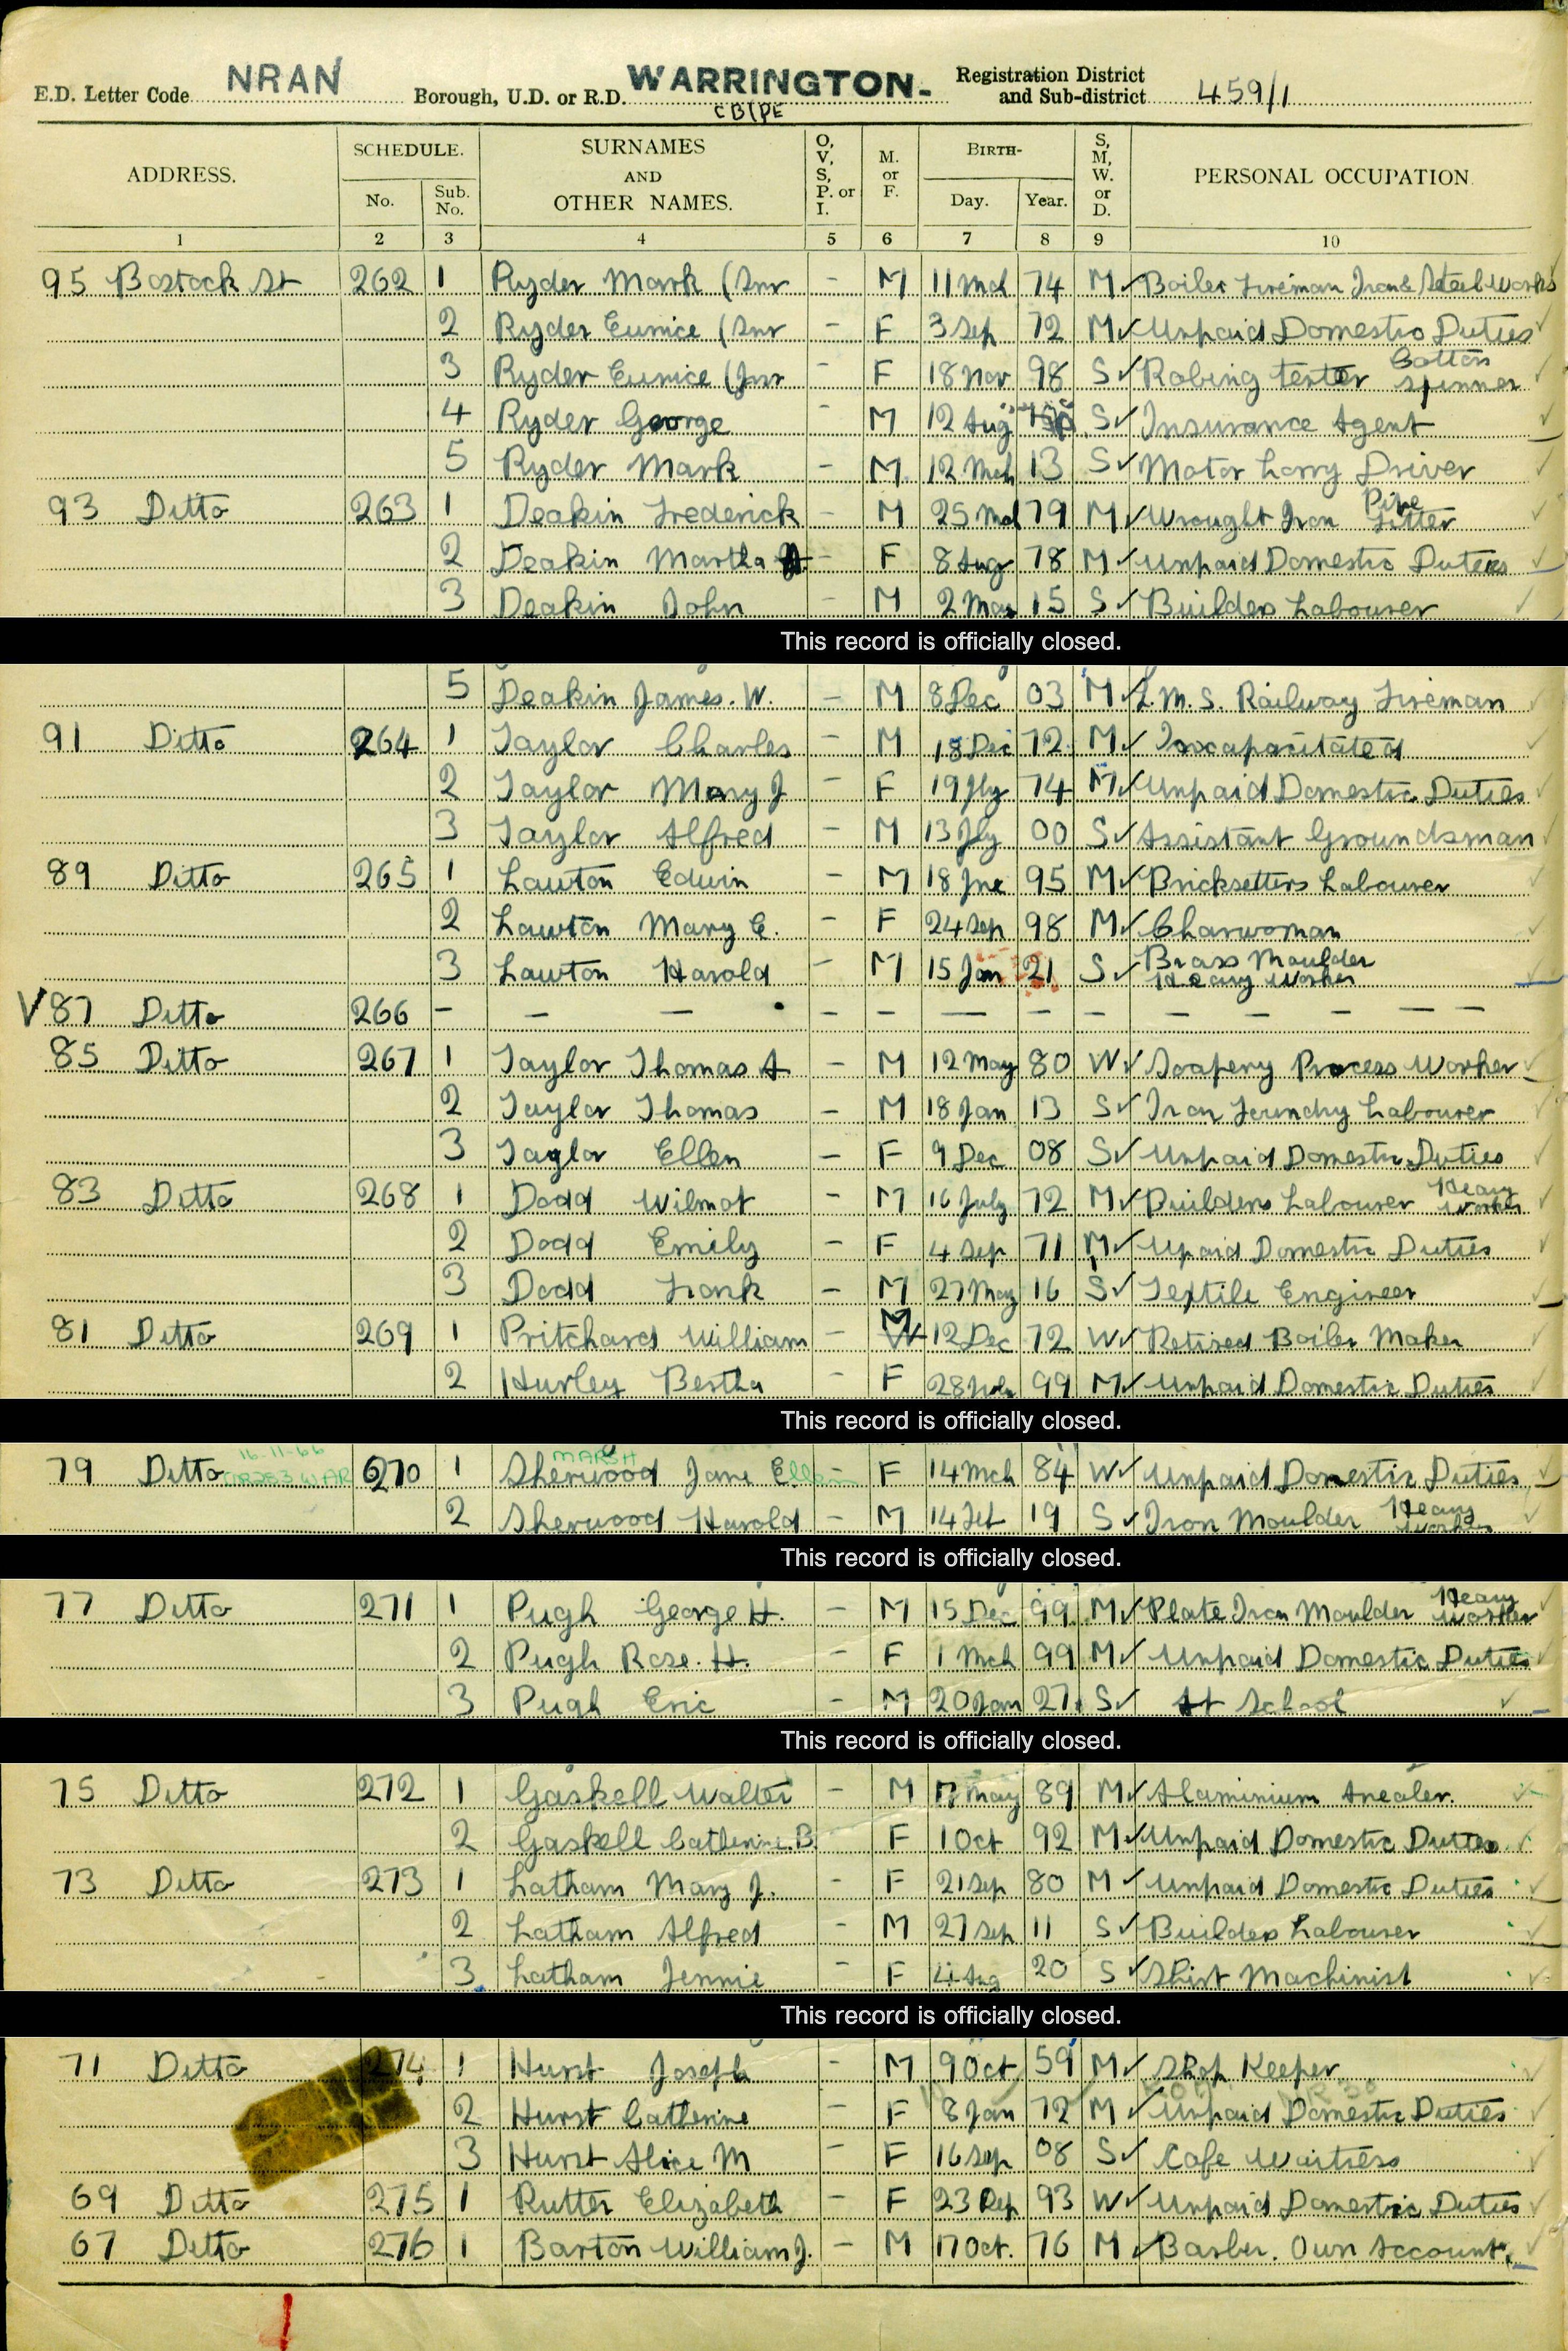 E.D. Letter Code NRAN Borough, U.D. or R.D. WARRINGTON- Registration District and Sub-district 459/1
CB/PE
ADDRESS. SCHEDULE. SURNAMES AND OTHER NAMES. O, V, S, P. or I. M. or F. BIRTH- S, M, W. or D. PERSONAL OCCUPATION
No. Sub. No. Day. Year.
1 2 3 4 5 6 7 8 9 10
95 Bostock St 262 1 Ryder Mark (Snr - M 11 Mch 74 M Boiler Fireman Iron & Steel Works
2 Ryder Eunice (Snr - F 3 Sep 72 M Unpaid Domestic Duties
3 Ryder Eunice (Jnr - F 18 Nov 98 S Robing tester Cotton Spinner
4 Ryder George - M 12 Aug S Insurance Agent
5 Ryder Mark - M 12 Mch 13 S Motor Lorry Driver
93 Ditto 263 1 Deakin Frederick - M 25 Mch 79 M Wrought Iron Pipe Fitter
2 Deakin Martha A - F 8 Aug 78 M Unpaid Domestic Duties
3 Deakin John - M 2 May 15 S Builders Labourer
This record is officially closed.
5 Deakin James. W. - M 8 Dec 03 M L.M.S. Railway Fireman
91 Ditto 264 1 Taylor Charles - M 18 Dec 72 M Incapacitated
2 Taylor Mary J - F 19 Jly 74 M Unpaid Domestic Duties
3 Taylor Alfred - M 13 Jly 00 S Assistant Groundsman
89 Ditto 265 1 Lawton Edwin - M 18 Jne 95 M Bricksetters Labourer
2 Lawton Mary E. - F 24 Sep 98 M Charwoman
3 Lawton Harold - M 15 Jan 21 S Brass Moulder Heavy Worker
V 87 Ditto 266 - - - - - - - - - - - - -
85 Ditto 267 1 Taylor Thomas A - M 12 May 80 W Soapery Process Worker
2 Taylor Thomas - M 18 Jan 13 S Iron Foundry Labourer
3 Taylor Ellen - F 9 Dec 08 S Unpaid Domestic Duties
83 Ditto 268 1 Dodd Wilmot - M 16 July 72 M Builders Labourer Heavy Worker
2 Dodd Emily - F 4 Sep 71 M Upaid Domestic Duties
3 Dodd Frank - M 27 May 16 S Textile Engineer
81 Ditto 269 1 Pritchard William - M 12 Dec 72 W Retired Boiler Maker
2 Hurley Bertha - F 28 99 M Unpaid Domestic Duties
This record is officially closed.
16-11-66 MARSH
79 Ditto 270 1 Sherwood Jane Ellen - F 14 Mch 84 W Unpaid Domestic Duties
2 Sherwood Harold - M 14 Feb 19 S Iron Moulder Heavy Worker
This record is officially closed.
77 Ditto 271 1 Pugh George H. - M 15 Dec 99 M Plate Iron Moulder Heavy Worker
2 Pugh Rose. H. - F 1 Mch 99 M Unpaid Domestic Duties
3 Pugh Eric - M 20 Jan 27 S At School
This record is officially closed.
75 Ditto 272 1 Gaskell Walter - M 17 May 89 M Aluminium Anealer.
2 Gaskell Catherine. B - F 1 Oct 92 M Unpaid Domestic Duties
73 Ditto 273 1 Latham Mary J. - F 21 Sep 80 M Unpaid Domestic Duties
2 Latham Alfred - M 27 Sep 11 S Builders Labourer
3 Latham Jennie - F Aug 20 S Shirt Machinist
This record is officially closed.
71 Ditto 274 1 Hurst Joseph - M 9 Oct 59 M Shop Keeper
2 Hurst Catherine - F 8 Jan 72 M Unpaid Domestic Duties
3 Hurst Alice M - F 16 Sep 08 S Cafe Waitress
69 Ditto 275 1 Rutter Elizabeth - F 23 Sep 93 W Unpaid Domestic Duties
67 Ditto 276 1 Barton William J. - M 17 Oct. 76 M Barber. Own Account.